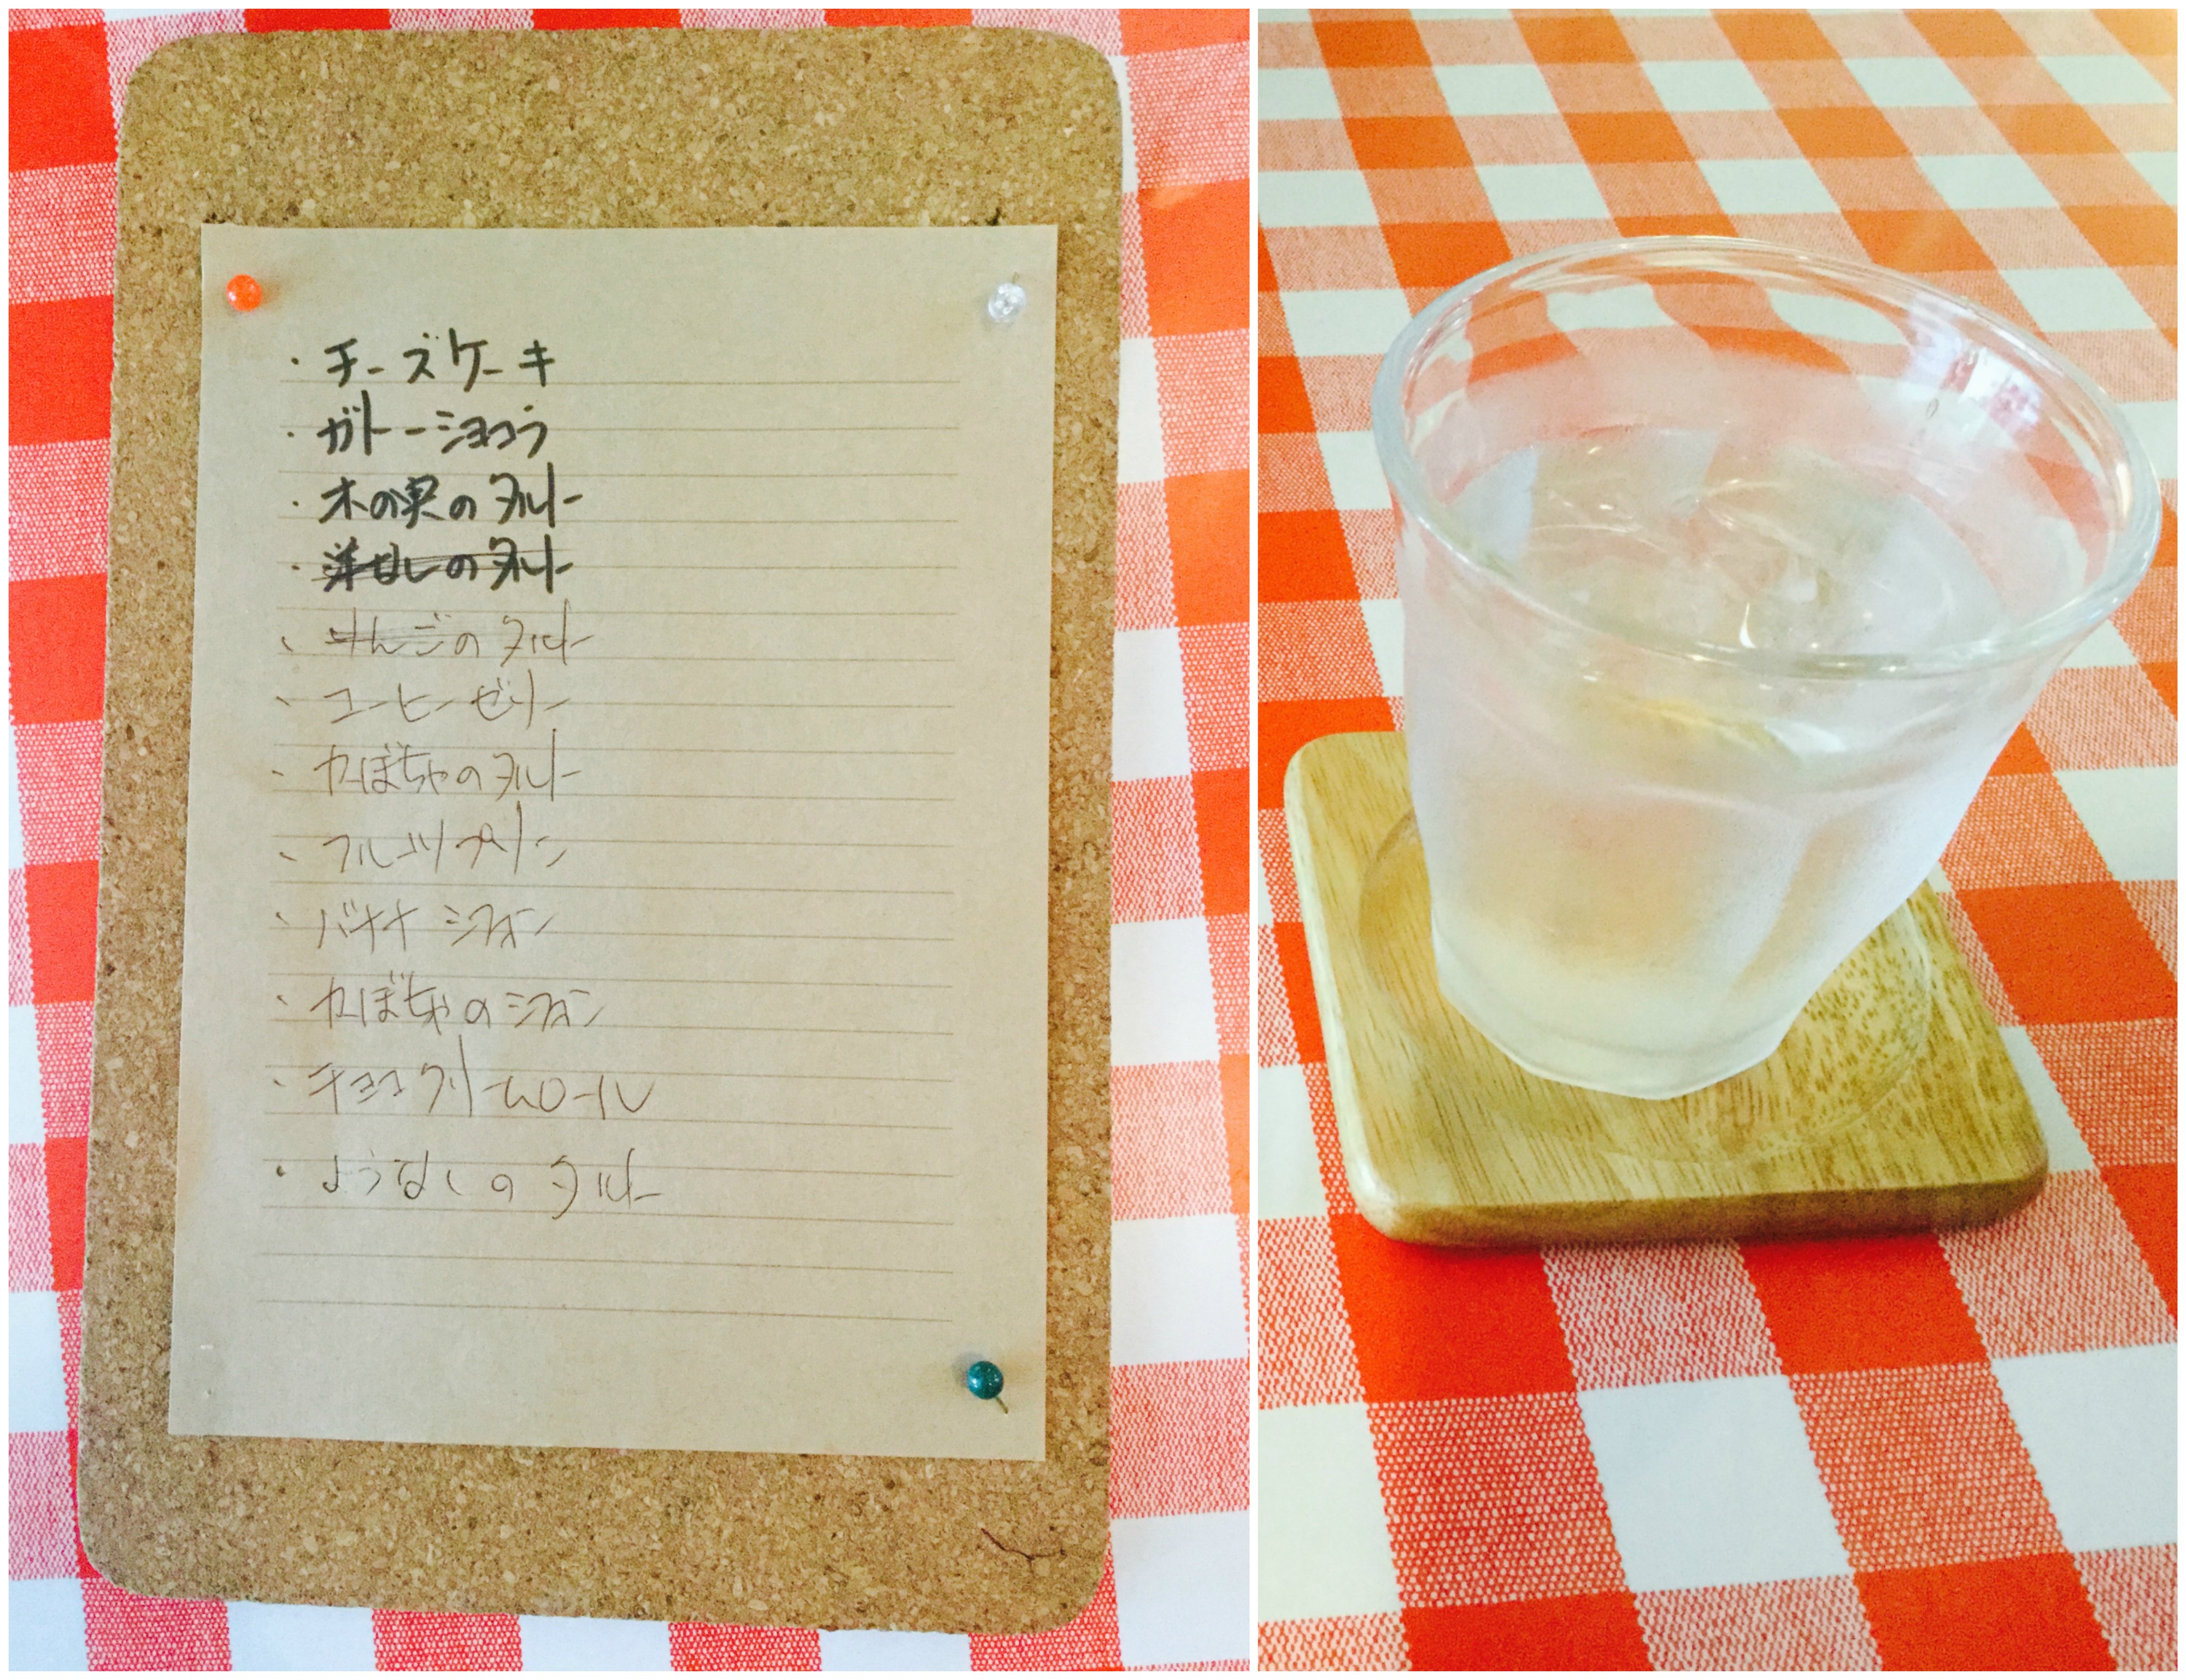 ・チーズケーキ
・ガトーショコラ
・木の実のタルト
・洋なしのタルト
・りんごのタルト
・コーヒーゼリー
・かぼちゃのタルト
・フルーツプリン
・バナナシフォン
・かぼちゃのシフォン
・チョコクリームロール
・ようなしのタルト